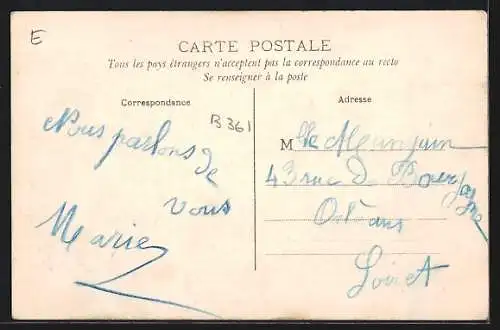 E
CARTE POSTALE
Tous les pays étrangers n'acceptent pas la correspondance au recto
Se renseigner à la poste
Correspondance
B 361
Nous parlons de
vous
Marie
Adresse
Mlle
43 rue De Bourgogne
Orléans
Loiret